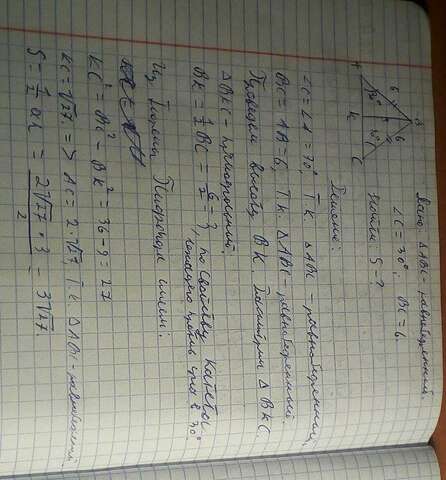 Дано: △ABC - равнобедренный.
∠C = 30°; BC = 6.
Найти: S - ?
A
B
C
K
6
6
30°
30°
Решение:
∠C = ∠A = 30°, т.к. △ABC - равнобедренный
BC = AB = 6, т.к. △ABC - равнобедренный
Проведём высоту BK. Рассмотрим △BKC.
△BKC - прямоугольный.
BK = 1/2 BC = 6/2 = 3, по свойству катета, лежащего против угла в 30°
Из Теоремы Пифагора имеем:
KC² = BC² - BK² = 36 - 9 = 27
KC = √27. => AC = 2·√27, т.к △ABC - равнобедренный
S = 1/2 ah = 2√27 · 3 / 2 = 3√27.